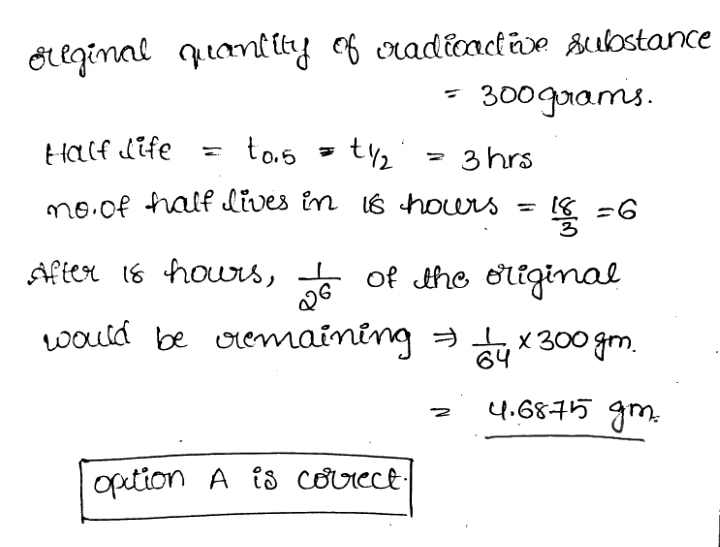 original quantity of radioactive substance
= 300grams.
Half life = t0.5 = t1/2 = 3 hrs
no.of half lives in 18 hours = 18/3 = 6
After 18 hours, 1/2^6 of the original
would be remaining ⇒ 1/64 x 300 gm.
= 4.6875 gm.
option A is correct.